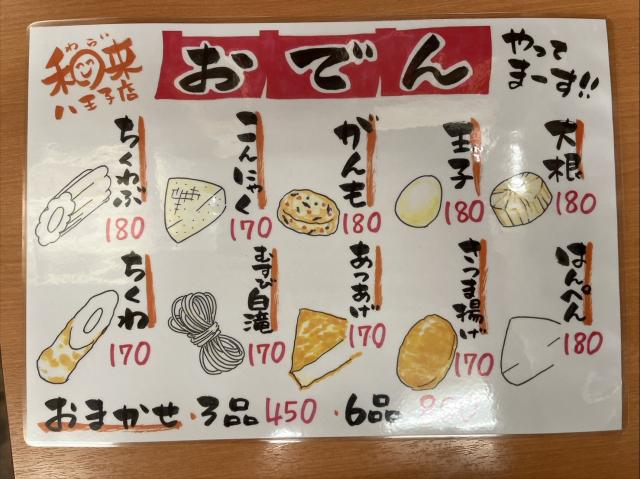 わらい
和来
八王子店
おでん
やってま～す!!
大根
180
玉子
180
がんも
180
こんにゃく
170
ちくわぶ
180
はんぺん
180
さつま揚げ
170
あつあげ
170
むすび白滝
170
ちくわ
170
おまかせ・3品450・6品